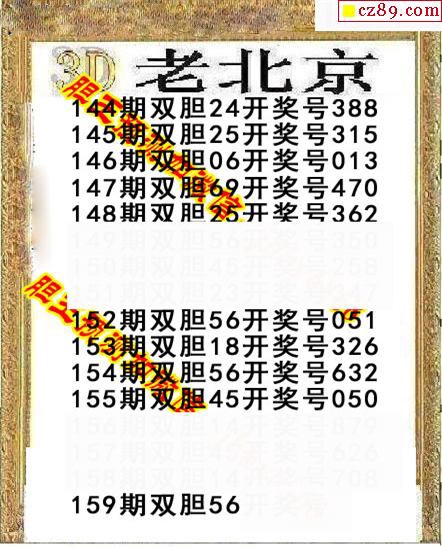 cz89.com
3D 老北京
144期双胆24开奖号388
145期双胆25开奖号315
146期双胆06开奖号013
147期双胆69开奖号470
148期双胆25开奖号362
149期双胆56开奖号350
150期双胆45开奖号258
151期双胆23开奖号347
152期双胆56开奖号051
153期双胆18开奖号326
154期双胆56开奖号632
155期双胆45开奖号050
156期双胆14开奖号879
157期双胆45开奖号626
158期双胆14开奖号708
159期双胆56